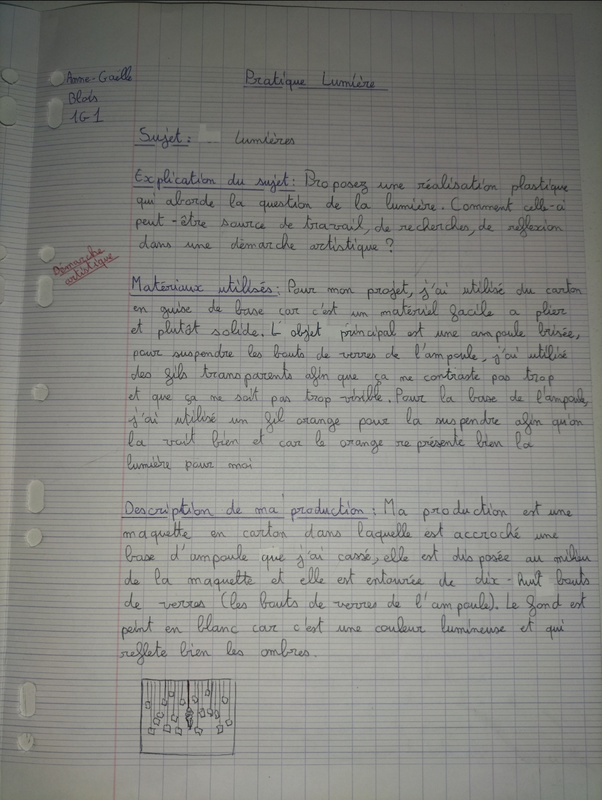 Anne-Gaëlle
Blois
1G1
Pratique Lumière
Sujet : Lumières
Explication du sujet : Proposez une réalisation plastique
qui aborde la question de la lumière. Comment celle-ci
peut-être source de travail, de recherches, de réflexion
dans une démarche artistique ?
Démarche
artistique
Matériaux utilisés : Pour mon projet, j'ai utilisé du carton
en guise de base car c'est un matériel facile a plier
et plutôt solide. L'objet principal est une ampoule brisée,
pour suspendre les bouts de verres de l'ampoule, j'ai utilisé
des fils transparents afin que ça ne contraste pas trop
et que ça ne soit pas trop visible. Pour la base de l'ampoule,
j'ai utilisé un fil orange pour la suspendre afin qu'on
la voit bien et car le orange représente bien la
lumière pour moi
Description de ma production : Ma production est une
maquette en carton dans laquelle est accroché une
base d'ampoule que j'ai cassé, elle est disposée au milieu
de la maquette et elle est entourée de dix-huit bouts
de verres (les bouts de verres de l'ampoule). Le fond est
peint en blanc car c'est une couleur lumineuse et qui
reflete bien les ombres.